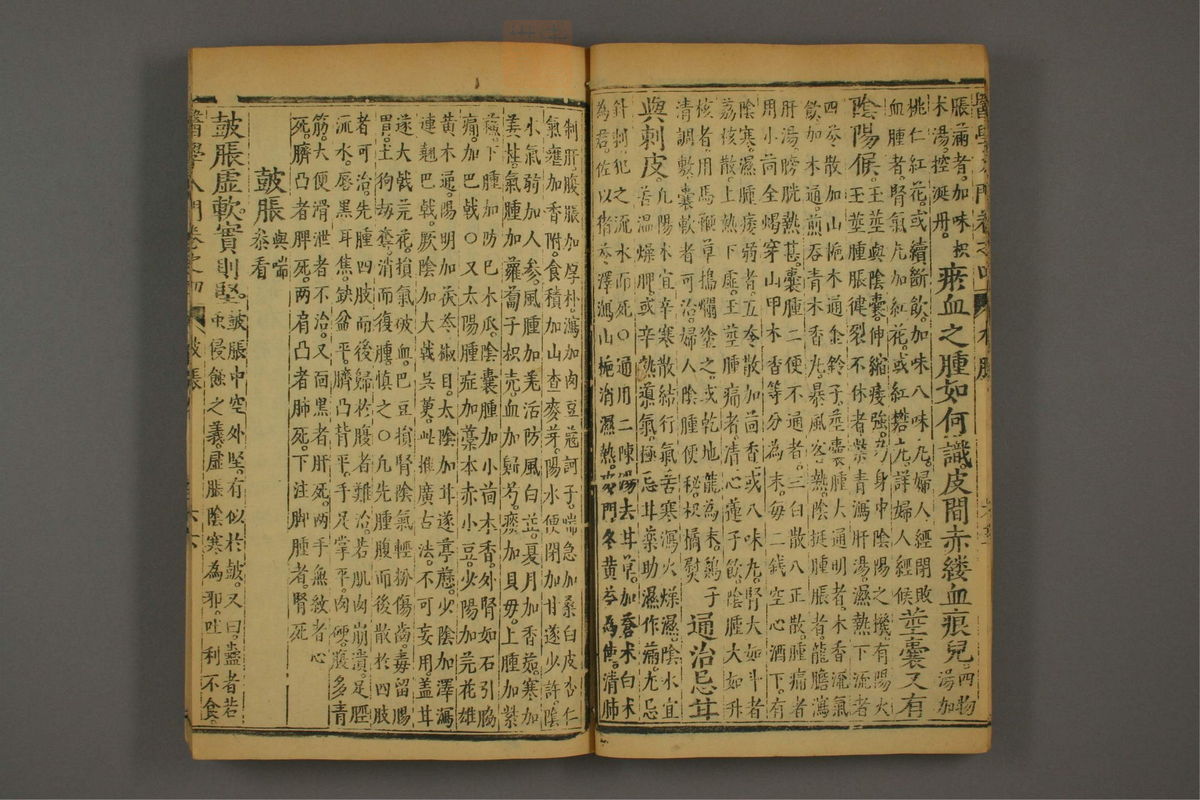 脹滿者。加味枳
木湯。控涎丹。瘀血之腫如何識。皮間赤縷血痕兒。四物
湯加
桃仁紅花。或續斷飲。加味八味丸。婦人經閉敗
血腫者。腎氣丸加紅花。或紅礬丸。詳婦人經候。莖囊又有
陰陽候。玉莖與陰囊。伸縮痿強。乃身中陰陽之機。有陽火
者。玉莖腫脹健裂不休者。柴青瀉肝湯。濕熱下流者
四苓散加山梔木通金鈴子。莖囊腫大通明者。木香流氣
飲加木通。煎吞青木香丸。暴風客熱。陰挺腫脹者。龍膽瀉
肝湯。膀胱熱甚。囊腫二便不通者。三白散。八正散。腫痛者
用小茴全蝎穿山甲木香等分為末。每二錢空心酒下。有
陰寒濕腫痿弱者。五苓散加茴香。或八味丸。腎大如斗者
荔枝散。上熱下虛。玉莖腫痛者。清心蓮子飲。陰腫大如升
核者。用馬鞭草搗爛塗之。或乾地龍為末。鷄子
清調敷。囊軟者可治。婦人陰腫便秘。枳橘熨。通治忌甘
與刺皮。凡陽水宜辛寒散結行氣。苦寒瀉火燥濕。陰水宜
苦溫燥脾。或辛熱導氣。極忌甘藥助濕作滿。尤忌
針刺犯之流水而死。○通用二陳湯去甘草。加蒼朮白朮
為君。佐以猪苓澤瀉山梔消濕熱。麥門冬黃芩為使。清肺
制肝。腹脹加厚朴。瀉加肉豆蔻訶子。喘急加桑白皮杏仁
氣壅加香附。食積加山查麥芽。陽水便閉加甘遂少許。陰
水氣弱加人參。風腫加羌活防風白芷。夏月加香薷。寒加
薑桂。氣腫加蘿蔔子枳壳。血加歸芍。痰加貝母。上腫加紫
蘇。下腫加防己木瓜。陰囊腫加小茴木香。外腎如石引脇
痛。加巴戟。○又太陽腫症加藁本赤小豆。少陽加芫花雄
黃木通。陽明加茯苓椒目。太陰加甘遂葶藶。少陰加澤瀉
連翹巴戟。厥陰加大戟吳萸。此推廣古法。不可妄用。蓋甘
遂大戟芫花。損氣破血。巴豆損腎陰氣。輕粉傷齒。毒留腸
胃。土狗劫奪。消而復腫。慎之。○凡先腫腹而後散於四肢
者可治。先腫四肢而後歸於腹者難治。若肌肉崩潰。足脛
流水。唇黑耳焦。缺盆平。臍凸背平。手足掌平。肉硬。腹多青
筋。大便滑泄者不治。又面黑者肝死。兩手無紋者心
死。臍凸者脾死。兩肩凸者肺死。下注脚腫者。腎死
皷脹 與喘
叅看
皷脹虛軟實則堅。皷脹中空外堅。有似於皷。又曰。蠱者若
虫侵蝕之義。虛脹陰寒為邪。吐利不食。
醫學入門卷之四 皷脹